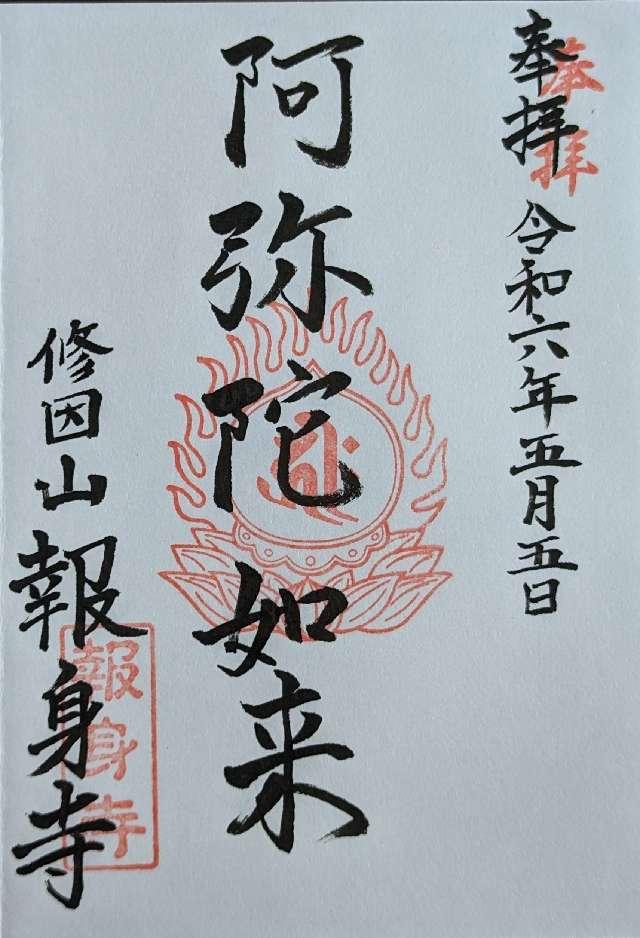 奉拝
奉拝
令和六年五月五日
阿弥陀如来
修因山
報身寺
報身寺